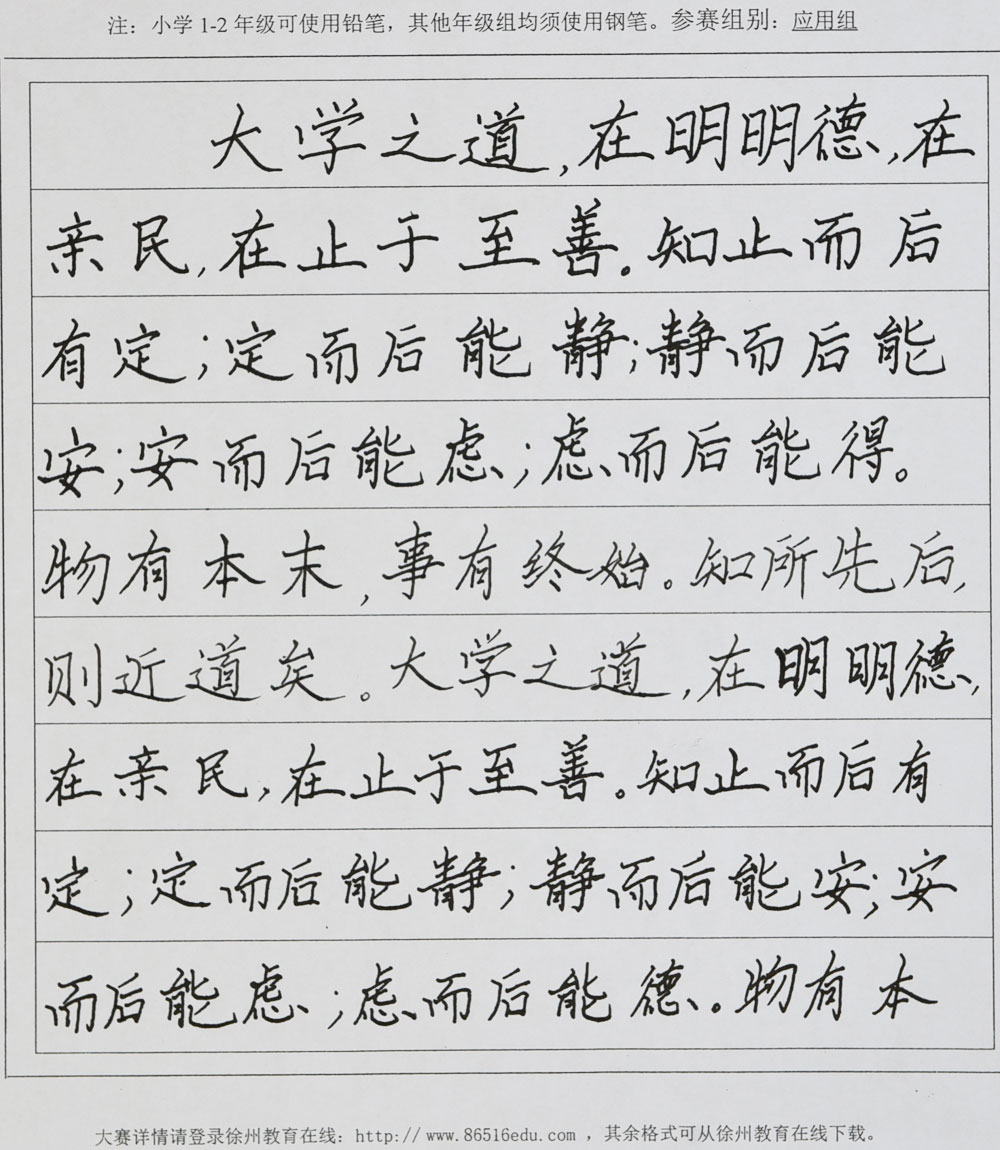 注：小学 1-2 年级可使用铅笔，其他年级组均须使用钢笔。参赛组别：应用组
大学之道，在明明德，在
亲民，在止于至善。知止而后
有定；定而后能静；静而后能
安；安而后能虑；虑而后能得。
物有本末，事有终始。知所先后，
则近道矣。大学之道，在明明德，
在亲民，在止于至善。知止而后有
定；定而后能静；静而后能安；安
而后能虑；虑而后能德。物有本
大赛详情请登录徐州教育在线：http:// www.86516edu.com ，其余格式可从徐州教育在线下载。